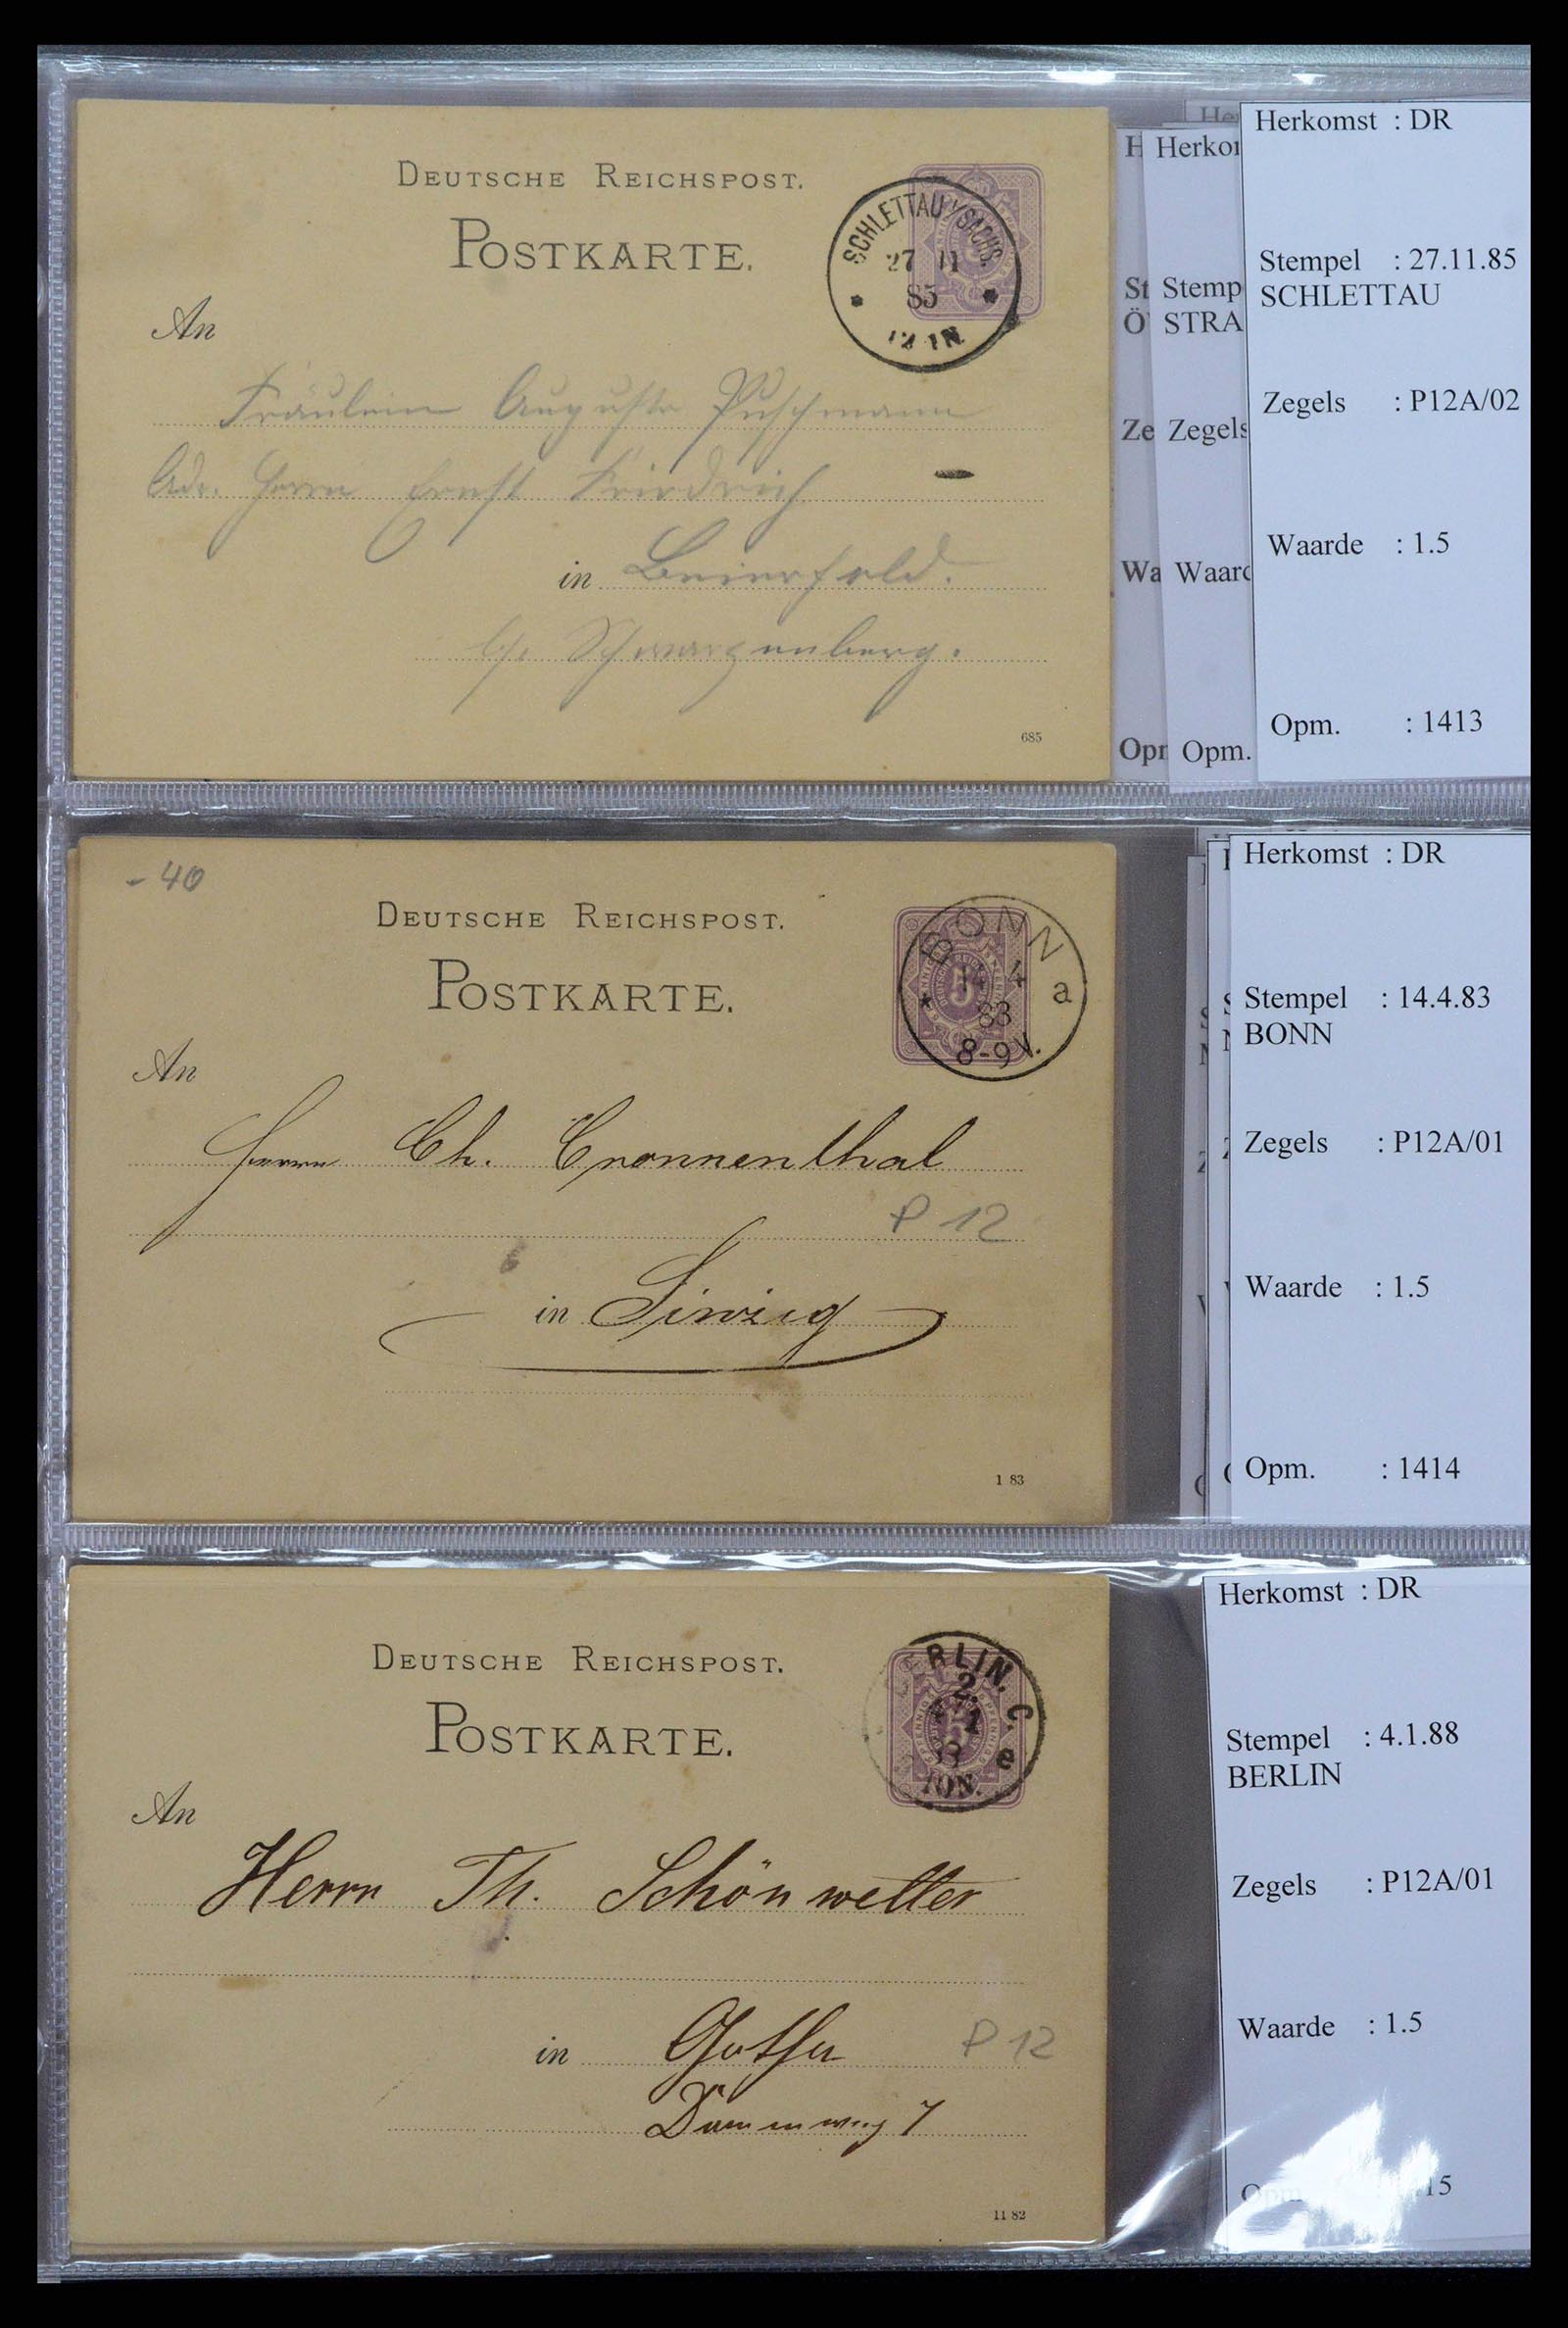 DEUTSCHE REICHSPOST.
POSTKARTE.
SCHLETTAU /SACHS.
27 11
85
12-1N.
An
Fräulein Auguste Puschmann
Adr. Herrn Ernst Friedrich
in Beierfeld.
b/. Schwarzenberg.
685
H
St
Ö
Ze
Wa
Opr
Herkor
Stemp
STRA
Zegels
Waard
Opm.
Herkomst : DR
Stempel : 27.11.85
SCHLETTAU
Zegels : P12A/02
Waarde : 1.5
Opm. : 1413
- 40
DEUTSCHE REICHSPOST.
POSTKARTE.
BONN
4
83
a
8-9V.
An
Herrn Ch. Cronnenthal
P 12
in Sinzig
1 83
Herkomst : DR
Stempel : 14.4.83
BONN
Zegels : P12A/01
Waarde : 1.5
Opm. : 1414
DEUTSCHE REICHSPOST.
POSTKARTE.
RLIN. C.
e
An
Herrn Th. Schönwetter
in Gotha
P 12
Dammweg 7
11 82
Herkomst : DR
Stempel : 4.1.88
BERLIN
Zegels : P12A/01
Waarde : 1.5
Opm. 15